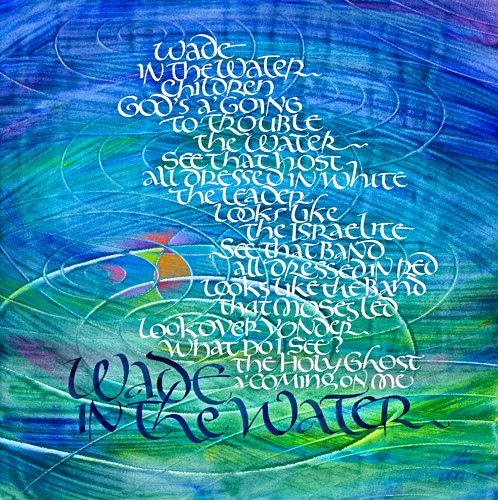 Wade
in the Water
children
God's a-going
to trouble
the water
See that host
all dressed in white
the leader
looks like
the Israelite
See that band
all dressed in red
Looks like the band
that Moses led
Look over yonder
what do I see?
the Holy Ghost
a-coming on me
Wade
in the Water